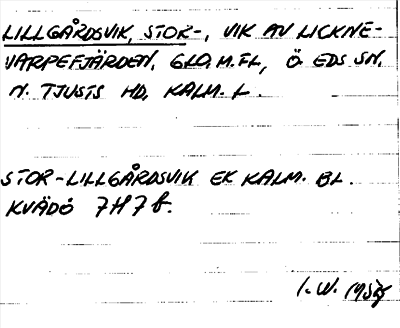 LILLGÅRDSVIK, STOR-, VIK AV LICKNE-
VARPEFJÄRDEN, GLO.M.FL, Ö. EDS SN,
N. TJUSTS HD, KALM. L.
STOR-LILLGÅRDSVIK EK KALM. BL.
KVÄDÖ 7H7f.
I.W.